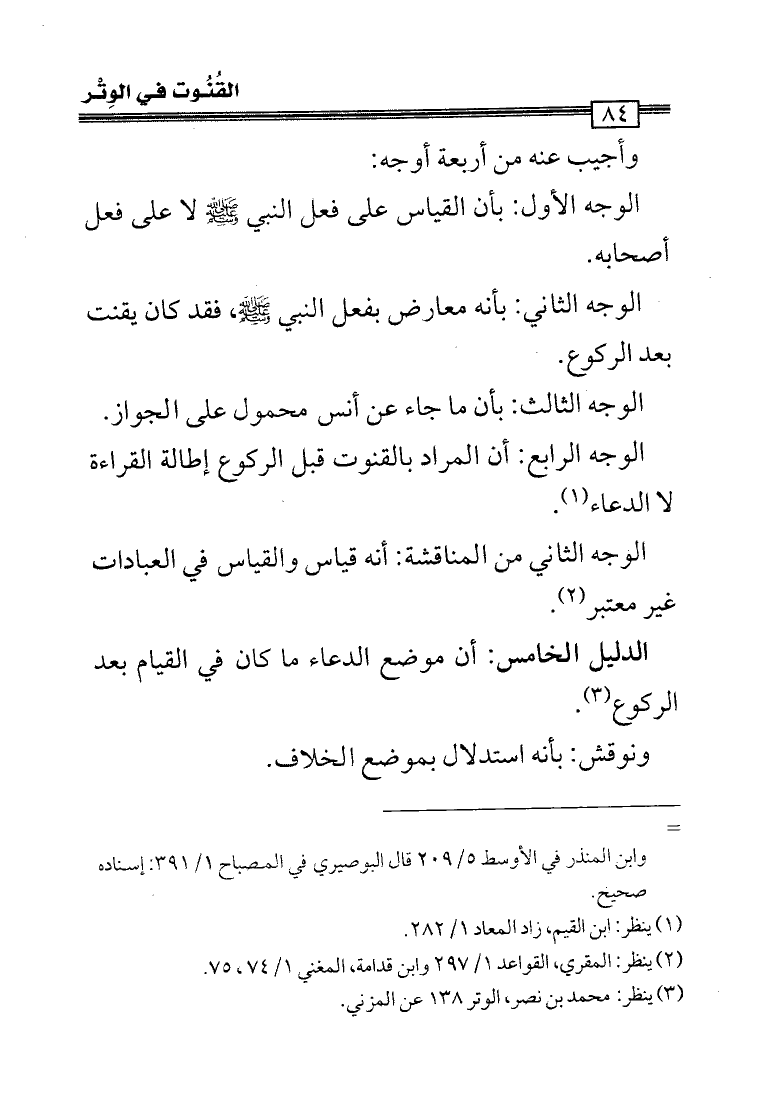 القُنُوت في الوِتْر
٨٤
وأجيب عنه من أربعة أوجه:
الوجه الأول: بأن القياس على فعل النبي ﷺ لا على فعل
أصحابه.
الوجه الثاني: بأنه معارض بفعل النبي ﷺ، فقد كان يقنت
بعد الركوع.
الوجه الثالث: بأن ما جاء عن أنس محمول على الجواز.
الوجه الرابع: أن المراد بالقنوت قبل الركوع إطالة القراءة
لا الدعاء(١).
الوجه الثاني من المناقشة: أنه قياس والقياس في العبادات
غير معتبر(٢).
الدليل الخامس: أن موضع الدعاء ما كان في القيام بعد
الركوع(٣).
ونوقش: بأنه استدلال بموضع الخلاف.
=
وابن المنذر في الأوسط ٥/ ٢٠٩ قال البوصيري في المصباح ١/ ٣٩١: إسناده
صحيح.
(١) ينظر: ابن القيم، زاد المعاد ١/ ٢٨٢.
(٢) ينظر: المقري، القواعد ١/ ٢٩٧ وابن قدامة، المغني ١/ ٧٤، ٧٥.
(٣) ينظر: محمد بن نصر، الوتر ١٣٨ عن المزني.